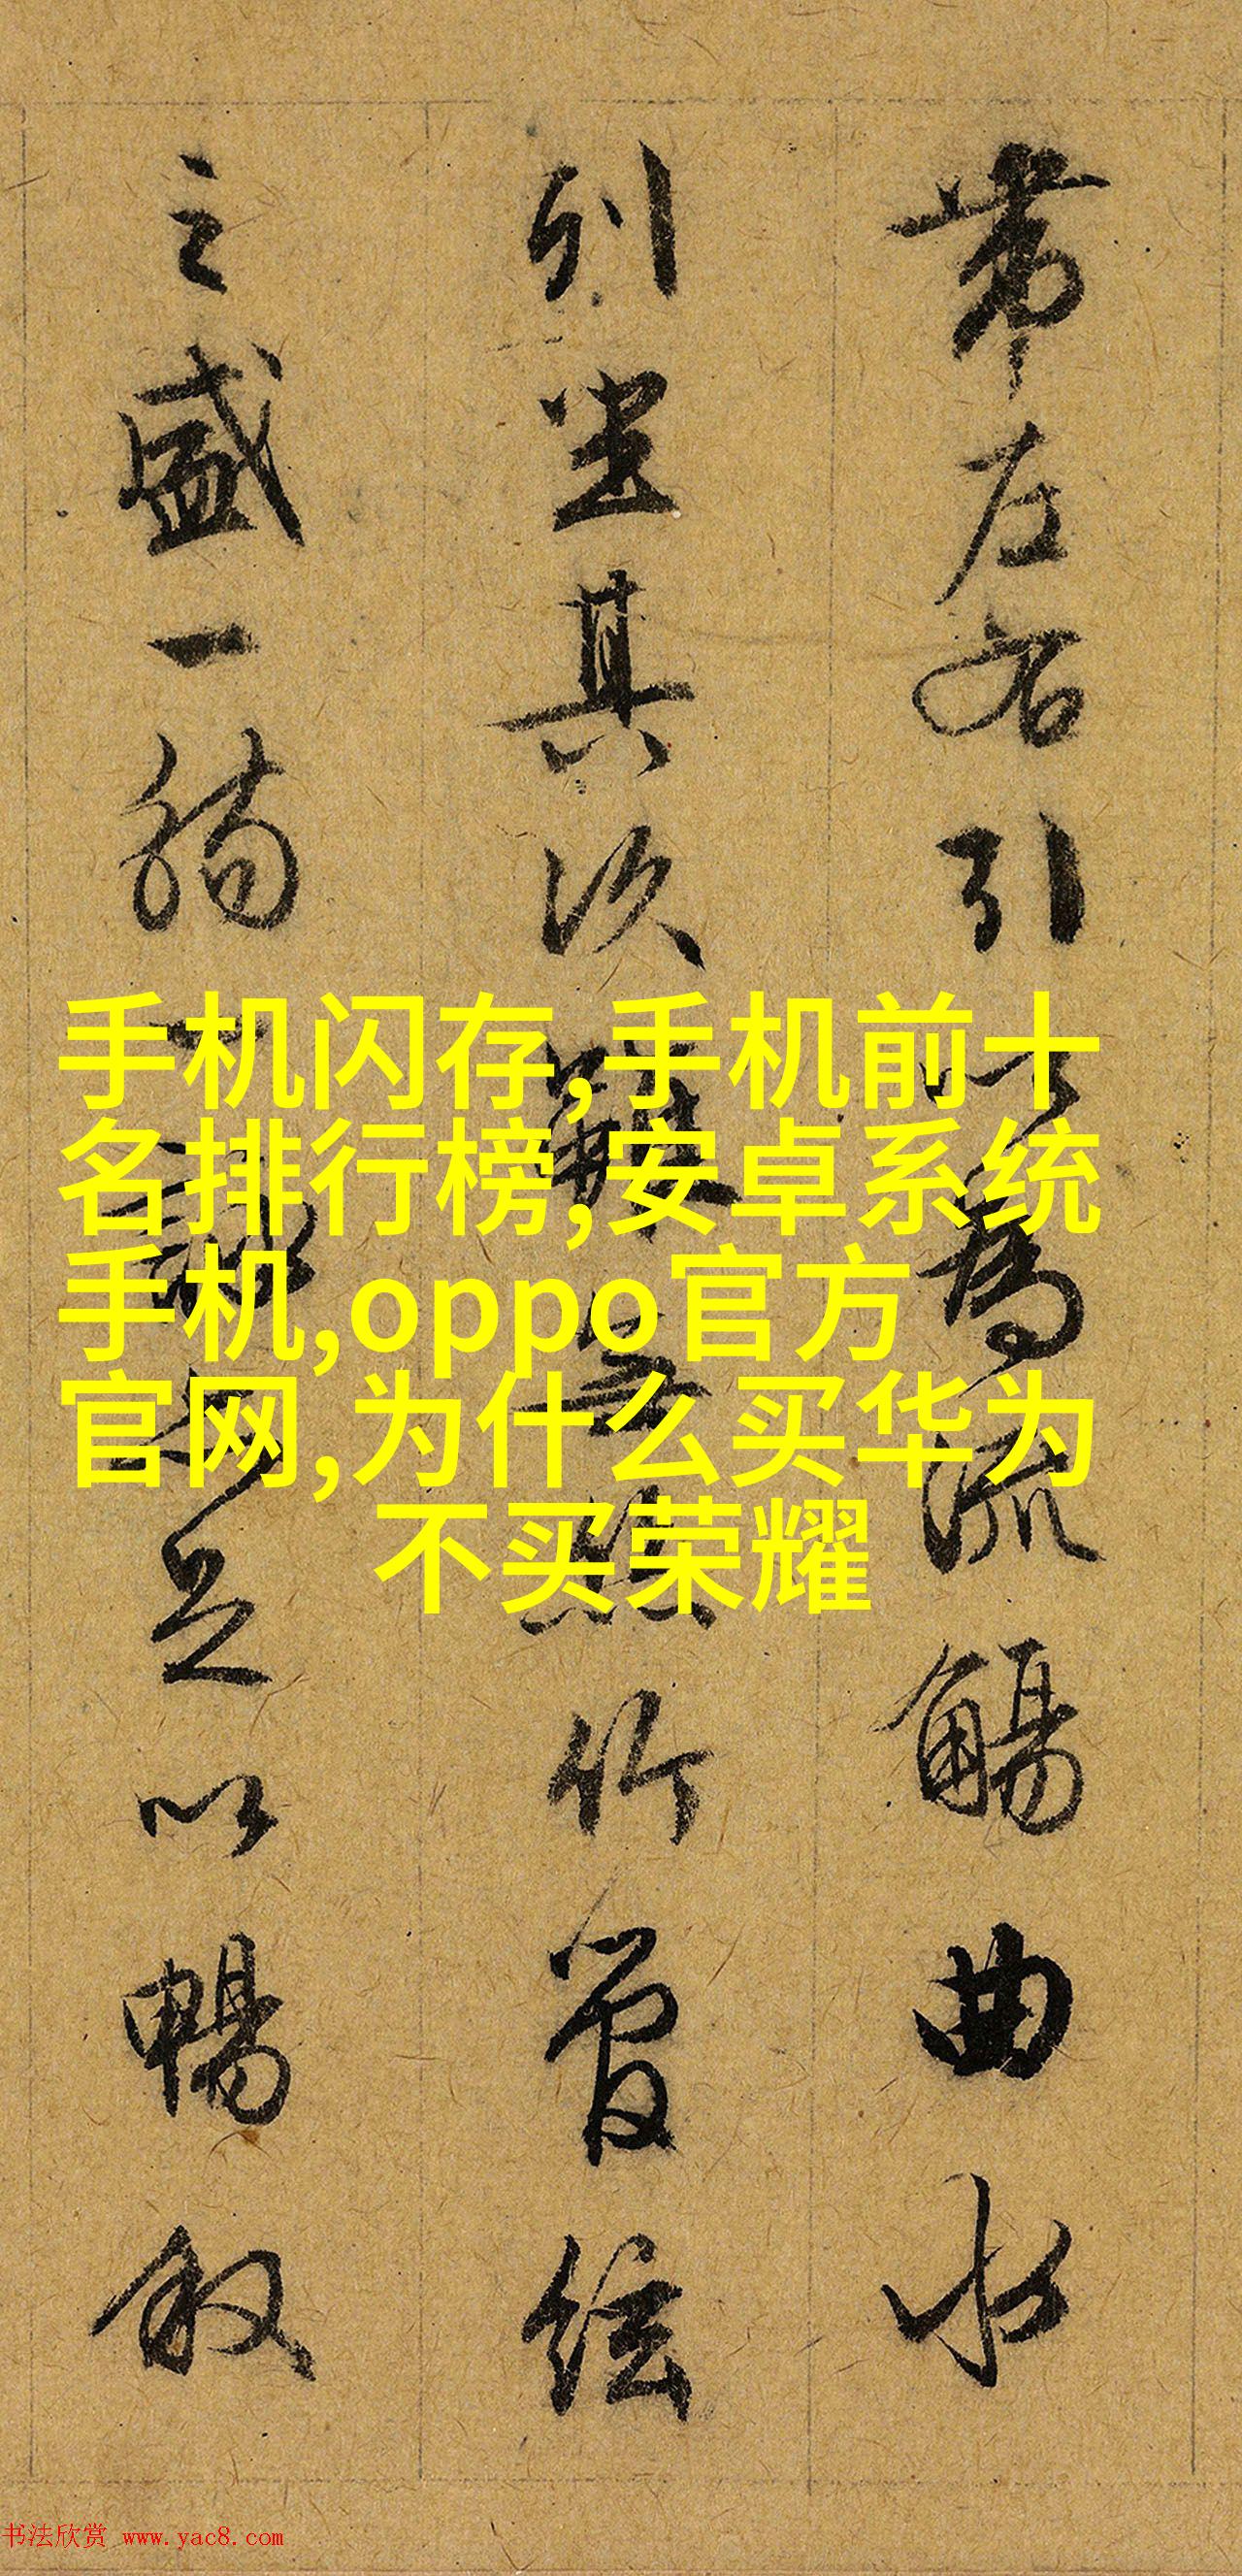 帶左右引以為流觴曲水
列坐其次雖無絲竹管絃
之盛一觴一詠亦足以暢敘
手机闪存,手机前十
名排行榜,安卓系统
手机,oppo官方
官网,为什么买华为
不买荣耀
书法欣赏 www.yac8.com